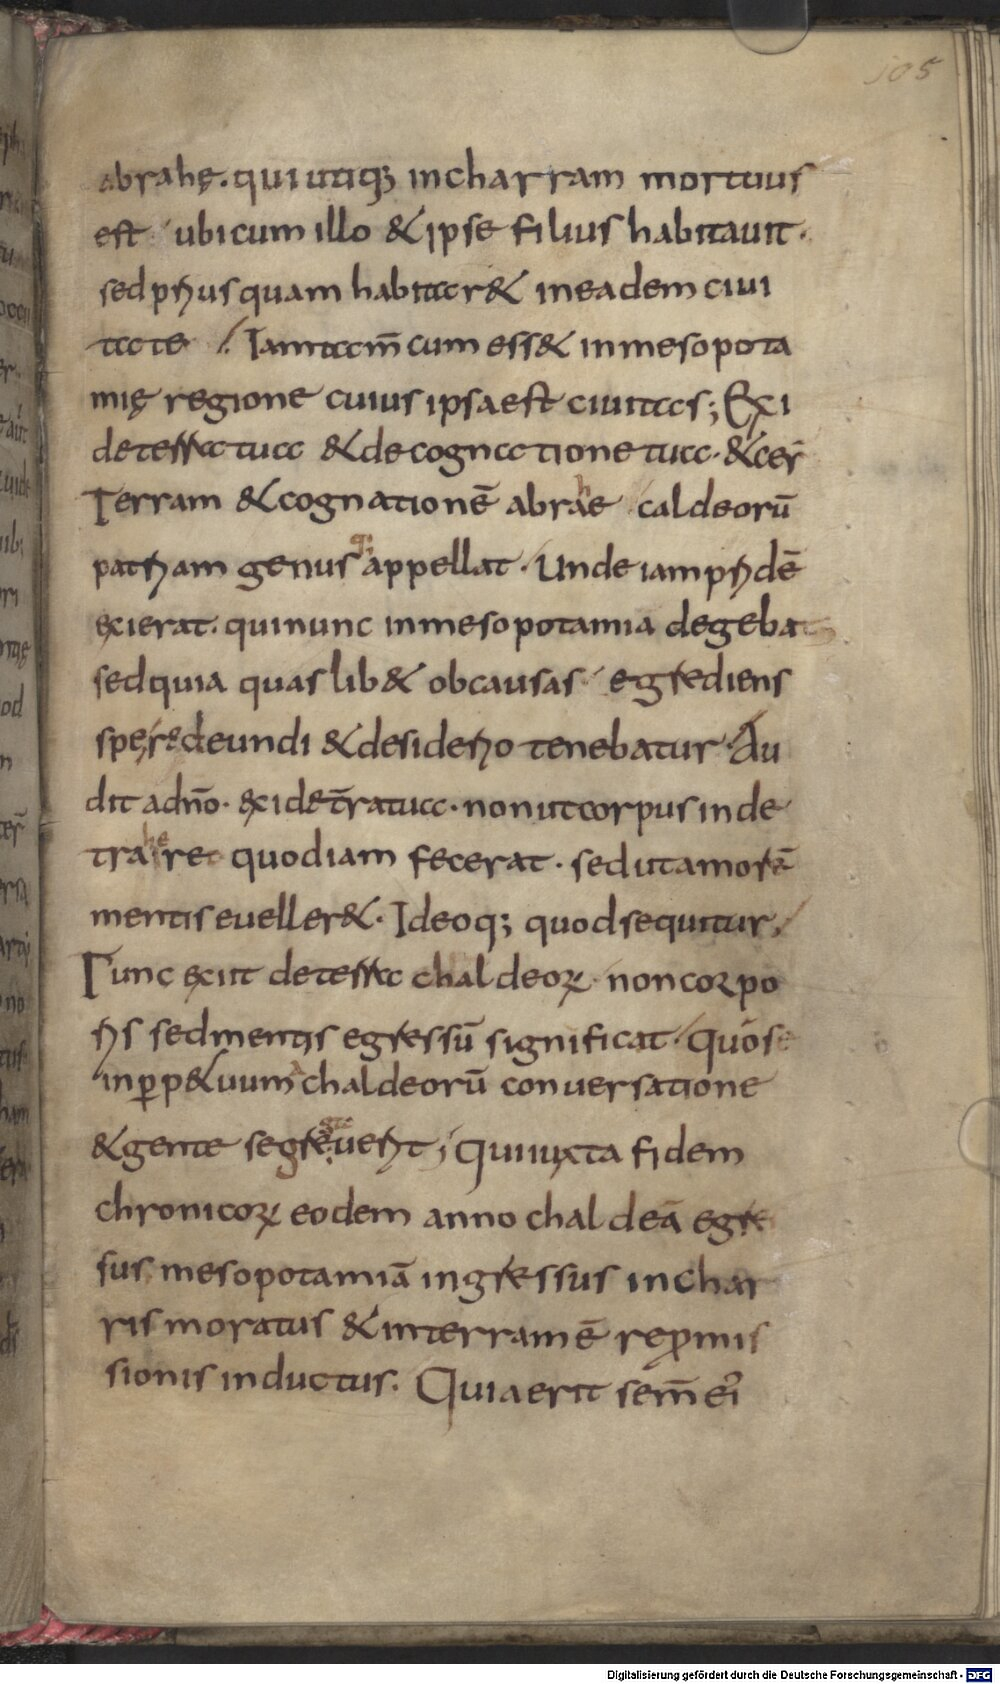 105
abrahę. qui utiq; incharram mortuus
est ubi cum illo & ipse filius habitauit.
sed prius quam habitar& in eadem ciui
tate. Iamtam̄ cum ess& in mesopota
mię regione cuius ipsa est ciuitas; Exi
de terra tua & de cognatione tua. & cet̄
Terram & cognationē abrahe caldeorū
patriam genusq; appellat. Unde iam pridē
exierat. qui nunc in mesopotamia degebat
sed quia quaslib& ob causas egrediens
spe redeundi & desiderio tenebatur. Au
dit a dn̄o. exi de tr̄a tua. non ut corpus inde
traheret quod iam fecerat. sed ut amorē
mentis eueller&. Ideoq; quod sequitur,
Tunc exiit de terra chaldeoꝝ non corpo
ris sed mentis egressū significat. Quo se
in ꝑp&uum a chaldeorū conuersatione
& gente segregauerit; Qui iuxta fidem
chronicoꝝ eodem anno chaldeā egre
sus mesopotamiā ingressus inchar
ris moratus & in terram ē repromis
sionis inductus. Quia erit sem̄ ei
Digitalisierung gefördert durch die Deutsche Forschungsgemeinschaft - DFG